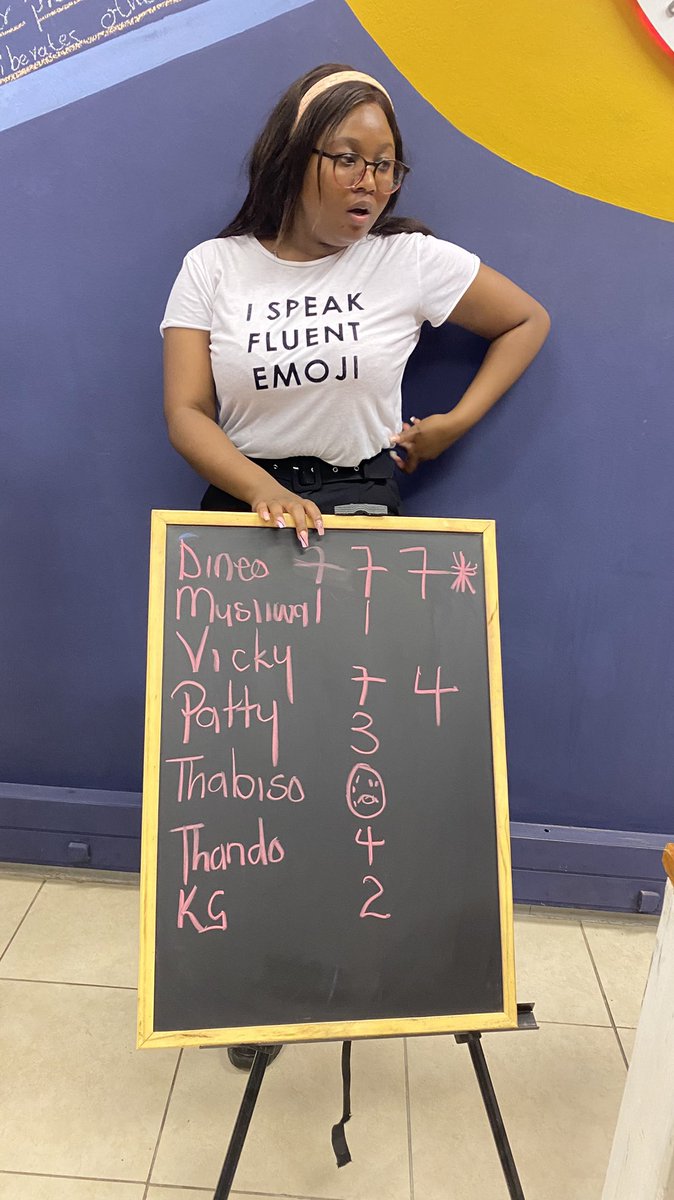 liberates
I SPEAK
FLUENT
EMOJI
Dineo 7 7 7
Musliwal 1
Vicky 7 4
Patty 3
Thabiso
Thando 4
KG 2